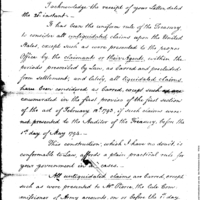 I acknowledge the receipt of your letter dated
the 26 instant.
It has been the uniform rule of the Treasury
to consider all unliquidated claims upon the United
States, except such as were presented to the proper
Officer by the claimants or their Agents, within the
periods prescribed by Law, as barred and precluded
from settlement; and lastly, all liquidated claims
have been considered as barred, except such as were
enumerated in the first proviso of the first section
of the act of February 12th 1793, if such claims were
not presented to the Auditor of the Treasury, before the
1st day of May 1794.
This construction, which I have no doubt is
conformable to Law, affords a plain practical rule for
your government in cases.
All unliquidated claims are barred, except
such as were presented to Mr. Pierce, the late Com-
missioner of Army accounts on or before the 1st day